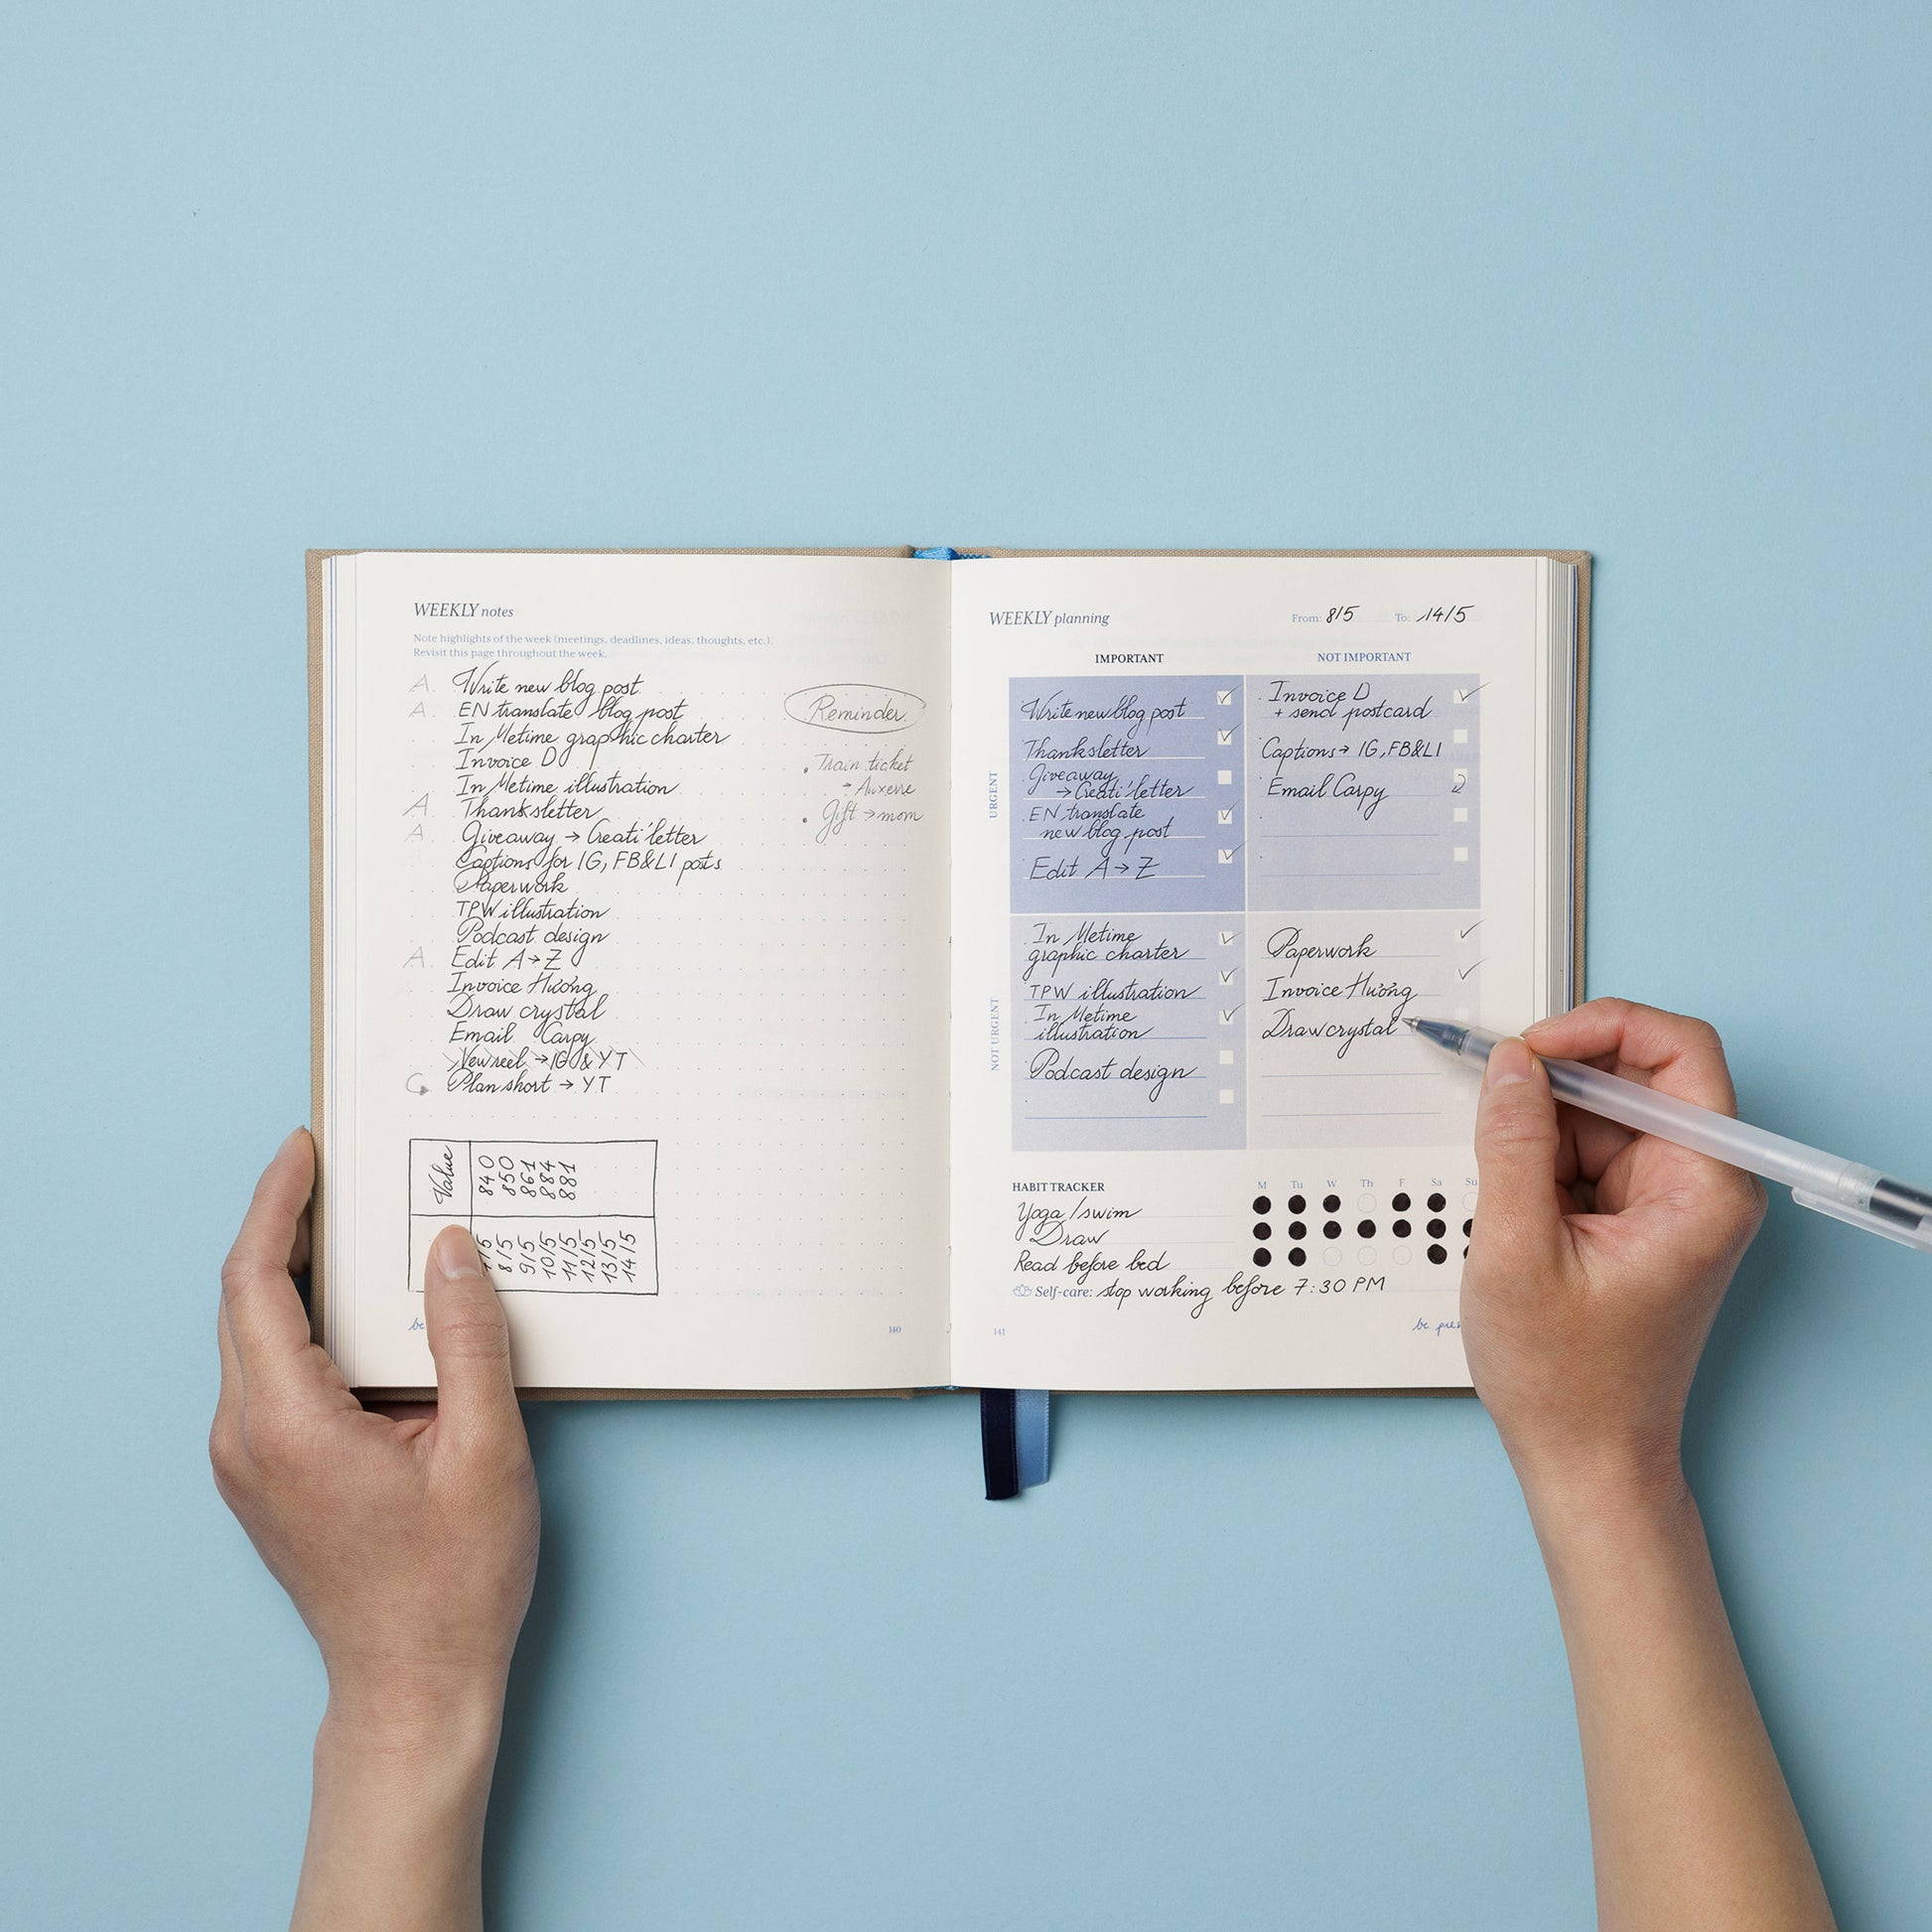 WEEKLY notes
Note highlights of the week (meetings, deadlines, ideas, thoughts, etc.).
Revisit this page throughout the week.
A. Write new blog post
A. EN translate blog post
In Metime graphic charter
Invoice D
In Metime illustration
A. Thanksletter
A. Giveaway → Creati'letter
Captions for IG, FB&LI posts
Paperwork
TPW illustration
Podcast design
A. Edit A→Z
Invoice Hương
Draw crystal
Email Carpy
New reel → IG & YT
Plan short → YT
Reminder
• Train ticket
→ Auxerre
• Gift → mom
Value
840
850
861
884
881
8/5
9/5
10/5
11/5
12/5
13/5
14/5
be
140
WEEKLY planning
From: 8/5 To: 14/5
IMPORTANT
NOT IMPORTANT
URGENT
Write new blog post
Thanksletter
Giveaway
→ Creati'letter
EN translate
new blog post
Edit A→Z
Invoice D
+ send postcard
Captions → IG, FB&LI
Email Carpy
NOT URGENT
In Metime
graphic charter
TPW illustration
In Metime
illustration
Podcast design
Paperwork
Invoice Hương
Draw crystal
HABIT TRACKER
M Tu W Th F Sa Su
Yoga/swim
Draw
Read before bed
Self-care: stop working before 7:30 PM
141
be